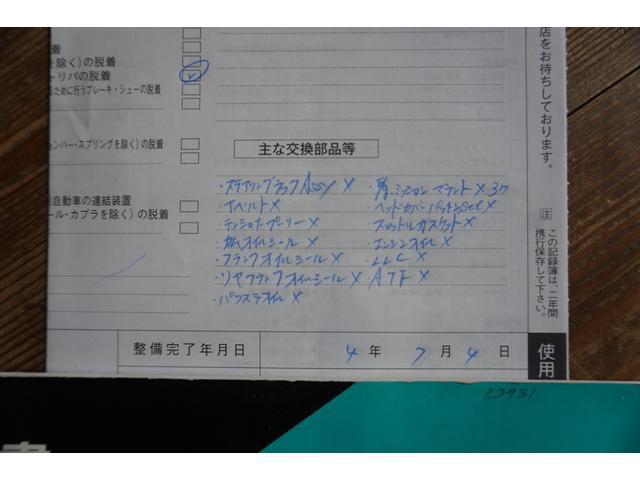 着
を除く)の脱着
トリパの脱着
るために行うブレーキ・シューの脱着
ョンバー・スプリングを除く)の脱着
自動車の連結装置
ール・カプラを除く)の脱着
主な交換部品等
・ステアリングラックAssy X
・Tベルト X
・テンショナプーリー X
・カムオイルシール X
・クランクオイルシール X
・リヤクランクオイルシール X
・パワステオイル X
ミッション マウント X 3ケ
・ヘッドカバーパッキンSet X
・スロットルガスケット X
・エンジンオイル X
・LLC X
・ATF X
整備完了年月日
4 年 7 月 4 日
店をお待ちしております。
注 この記録簿は、二年間
携行保存して下さい。
使用